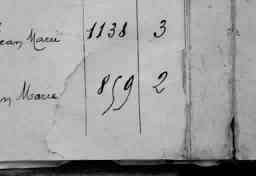 Jean Marie 1138 3
an Marie 859 2